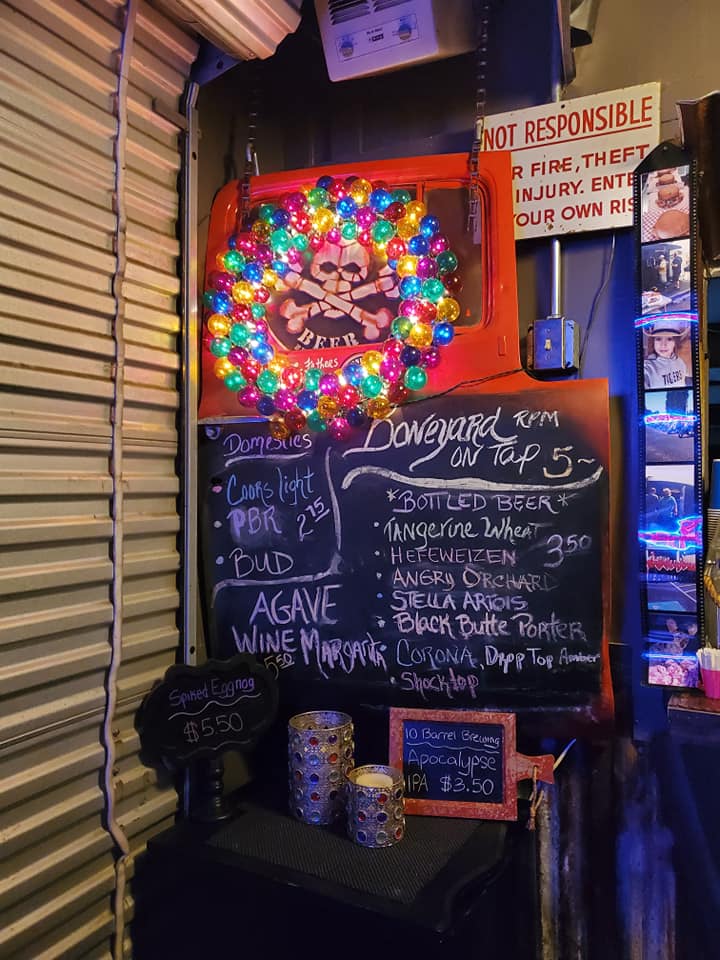 NOT RESPONSIBLE
R FIRE, THEFT
INJURY. ENTE
YOUR OWN RIS
BEER
TIGERS
Domestics
• Coors Light
• PBR 2.75
• BUD
AGAVE
WINE MARGARITA
5.50
Boneyard RPM
ON TAP 5~
*BOTTLED BEER*
• TANGERINE WHEAT
• HEFEWEIZEN 3.50
ANGRY ORCHARD
• STELLA ARTOIS
• Black Butte Porter
• CORONA, Drop Top Amber
• Shocktop
Spiked Eggnog
$5.50
10 Barrel Brewing
Apocalypse
IPA $3.50